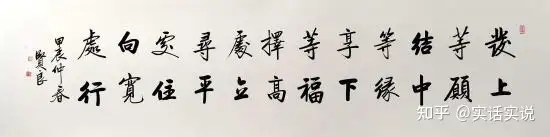 發上
等願
結中
等緣
享下
等福
擇高
處立
尋平
處住
向寬
處行
甲辰仲春
賢良
知乎 @实话实说